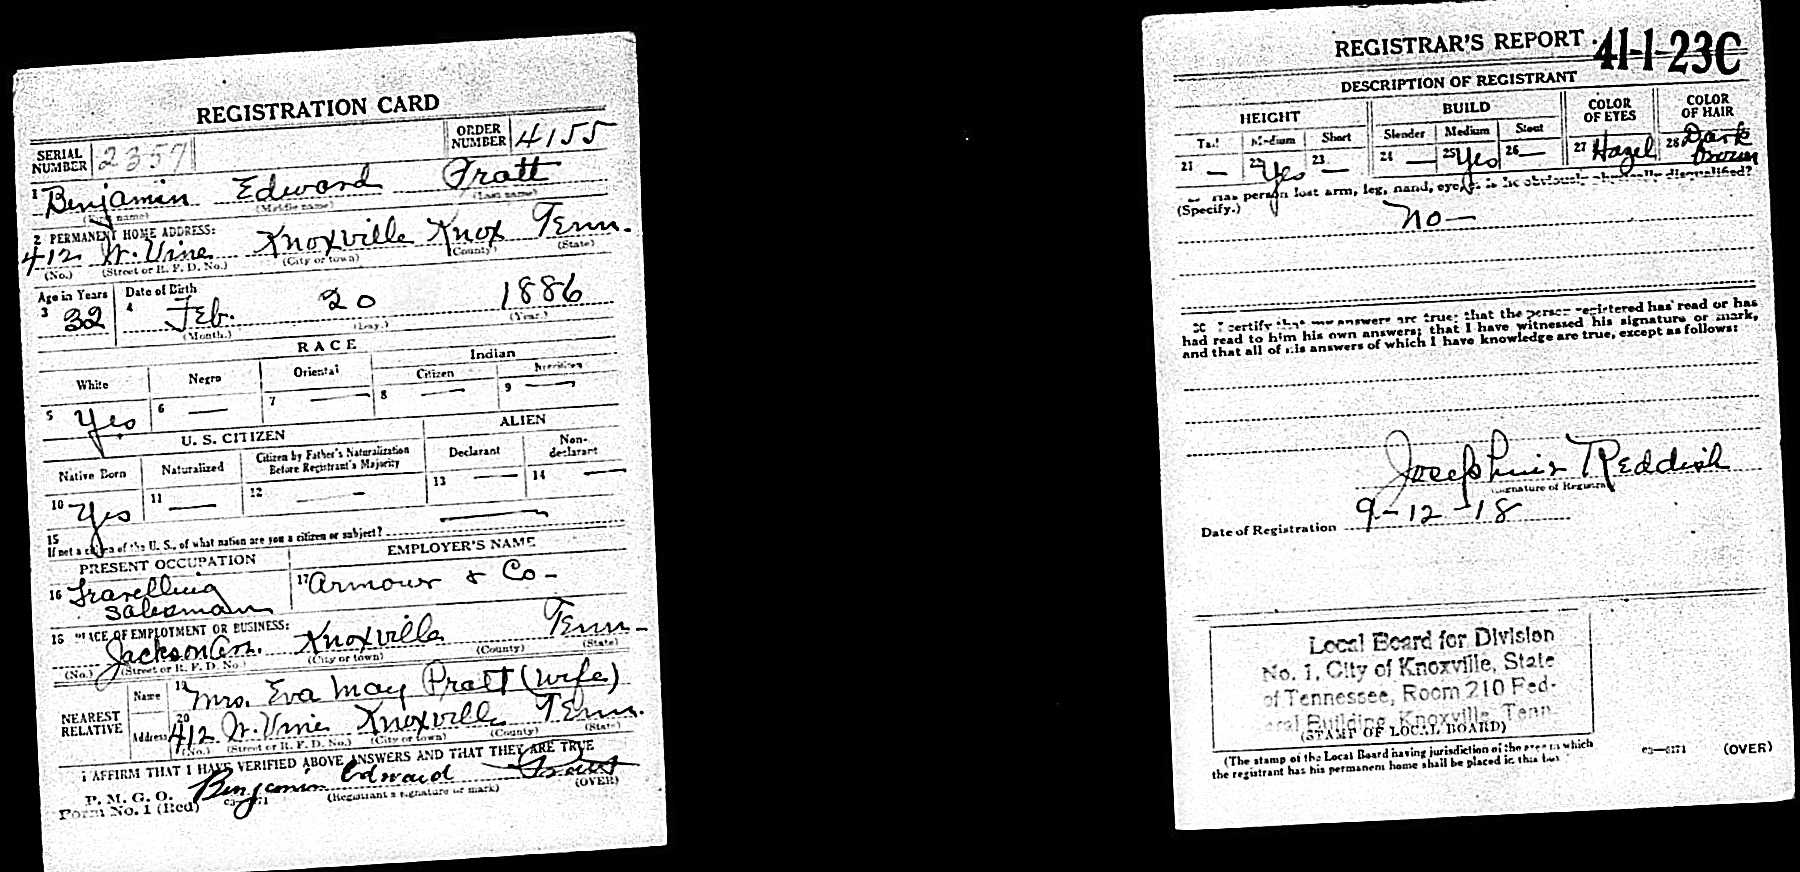 REGISTRATION CARD
SERIAL NUMBER 2357 ORDER NUMBER 4155
1 Benjamin Edward Pratt
(First name) (Middle name) (Last name)
2 PERMANENT HOME ADDRESS:
412 W. Vine Knoxville Knox Tenn.
(No.) (Street or R. F. D. No.) (City or town) (County) (State)
Age in Years Date of Birth
3 32 4 Feb. 20 1886
(Month.) (Day.) (Year.)
RACE
White Negro Oriental Indian
Citizen
5 Yes 6 — 7 — 8 — 9 —
U. S. CITIZEN ALIEN
Native Born Naturalized Citizen by Father's Naturalization Before Registrant's Majority Declarant Non-declarant
10 Yes 11 — 12 — 13 — 14 —
15 If not a citizen of the U. S., of what nation are you a citizen or subject? —
PRESENT OCCUPATION EMPLOYER'S NAME
16 Travelling salesman 17 Armour & Co —
18 PLACE OF EMPLOYMENT OR BUSINESS:
Jackson Knoxville Tenn —
(No.) (Street or R. F. D. No.) (City or town) (County) (State)
NEAREST RELATIVE
Name 19 Mrs. Eva May Pratt (wife)
Address 20 412 W. Vine Knoxville Tenn.
(No.) (Street or R. F. D. No.) (City or town) (County) (State)
I AFFIRM THAT I HAVE VERIFIED ABOVE ANSWERS AND THAT THEY ARE TRUE
P. M. G. O.
Form No. 1 (Red) Benjamin Edward Pratt
(Registrant's signature or mark) (OVER)
REGISTRAR'S REPORT 41-1-23C
DESCRIPTION OF REGISTRANT
HEIGHT BUILD COLOR OF EYES COLOR OF HAIR
Tall Medium Short Slender Medium Stout
21 — 22 Yes 23 — 24 — 25 Yes 26 — 27 Hazel 28 Dark Brown
29 Has person lost arm, leg, hand, eye, or is he obviously physically disqualified?
(Specify.) No —
30 I certify that my answers are true; that the person registered has read or has
had read to him his own answers; that I have witnessed his signature or mark,
and that all of his answers of which I have knowledge are true, except as follows:
Reddish
(Signature of Registrar)
Date of Registration 9-12-18
Local Board for Division
No. 1, City of Knoxville, State
of Tennessee, Room 210 Fed-
eral Building, Knoxville, Tenn.
(STAMP OF LOCAL BOARD)
(The stamp of the Local Board having jurisdiction of the area in which
the registrant has his permanent home shall be placed in this box.)
03—6171 (OVER)